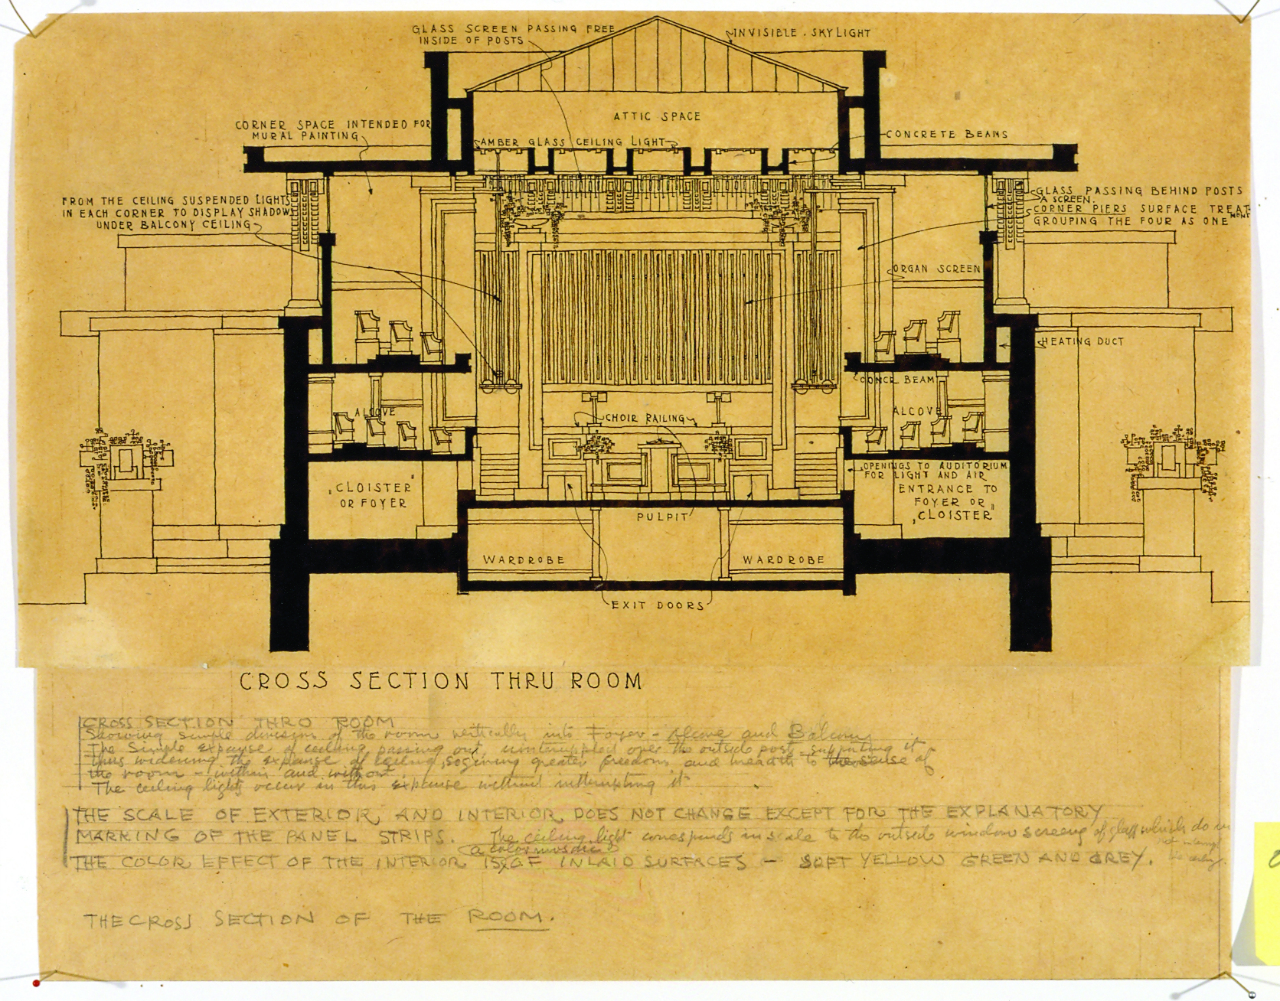 GLASS SCREEN PASSING FREE
INSIDE OF POSTS
INVISIBLE SKYLIGHT
ATTIC SPACE
CORNER SPACE INTENDED FOR
MURAL PAINTING
AMBER GLASS CEILING LIGHT
CONCRETE BEAMS
FROM THE CEILING SUSPENDED LIGHTS
IN EACH CORNER TO DISPLAY SHADOW
UNDER BALCONY CEILING
GLASS PASSING BEHIND POSTS
A SCREEN.
CORNER PIERS SURFACE TREATMENT
GROUPING THE FOUR AS ONE
ORGAN SCREEN
HEATING DUCT
CONCR BEAM
ALCOVE
CHOIR RAILING
ALCOVE
"CLOISTER"
OR FOYER
OPENINGS TO AUDITORIUM
FOR LIGHT AND AIR
ENTRANCE TO
FOYER OR
"CLOISTER"
PULPIT
WARDROBE
WARDROBE
EXIT DOORS
CROSS SECTION THRU ROOM
CROSS SECTION THRO ROOM
Showing simple division of the room vertically into Foyer - Alcove and Balcony
The simple expanse of ceiling passing out, uninterrupted over the outside posts supporting it
thus widening the expanse of ceiling, so giving greater freedom and breadth to the sense of
the room - within and without
The ceiling lights occur in this expanse without interrupting it
THE SCALE OF EXTERIOR AND INTERIOR DOES NOT CHANGE EXCEPT FOR THE EXPLANATORY
MARKING OF THE PANEL STRIPS. The ceiling light corresponds in scale to the outside window screens of glass which do
a color mosaic
THE COLOR EFFECT OF THE INTERIOR IS OF INLAID SURFACES - SOFT YELLOW GREEN AND GREY.
THE CROSS SECTION OF THE ROOM.